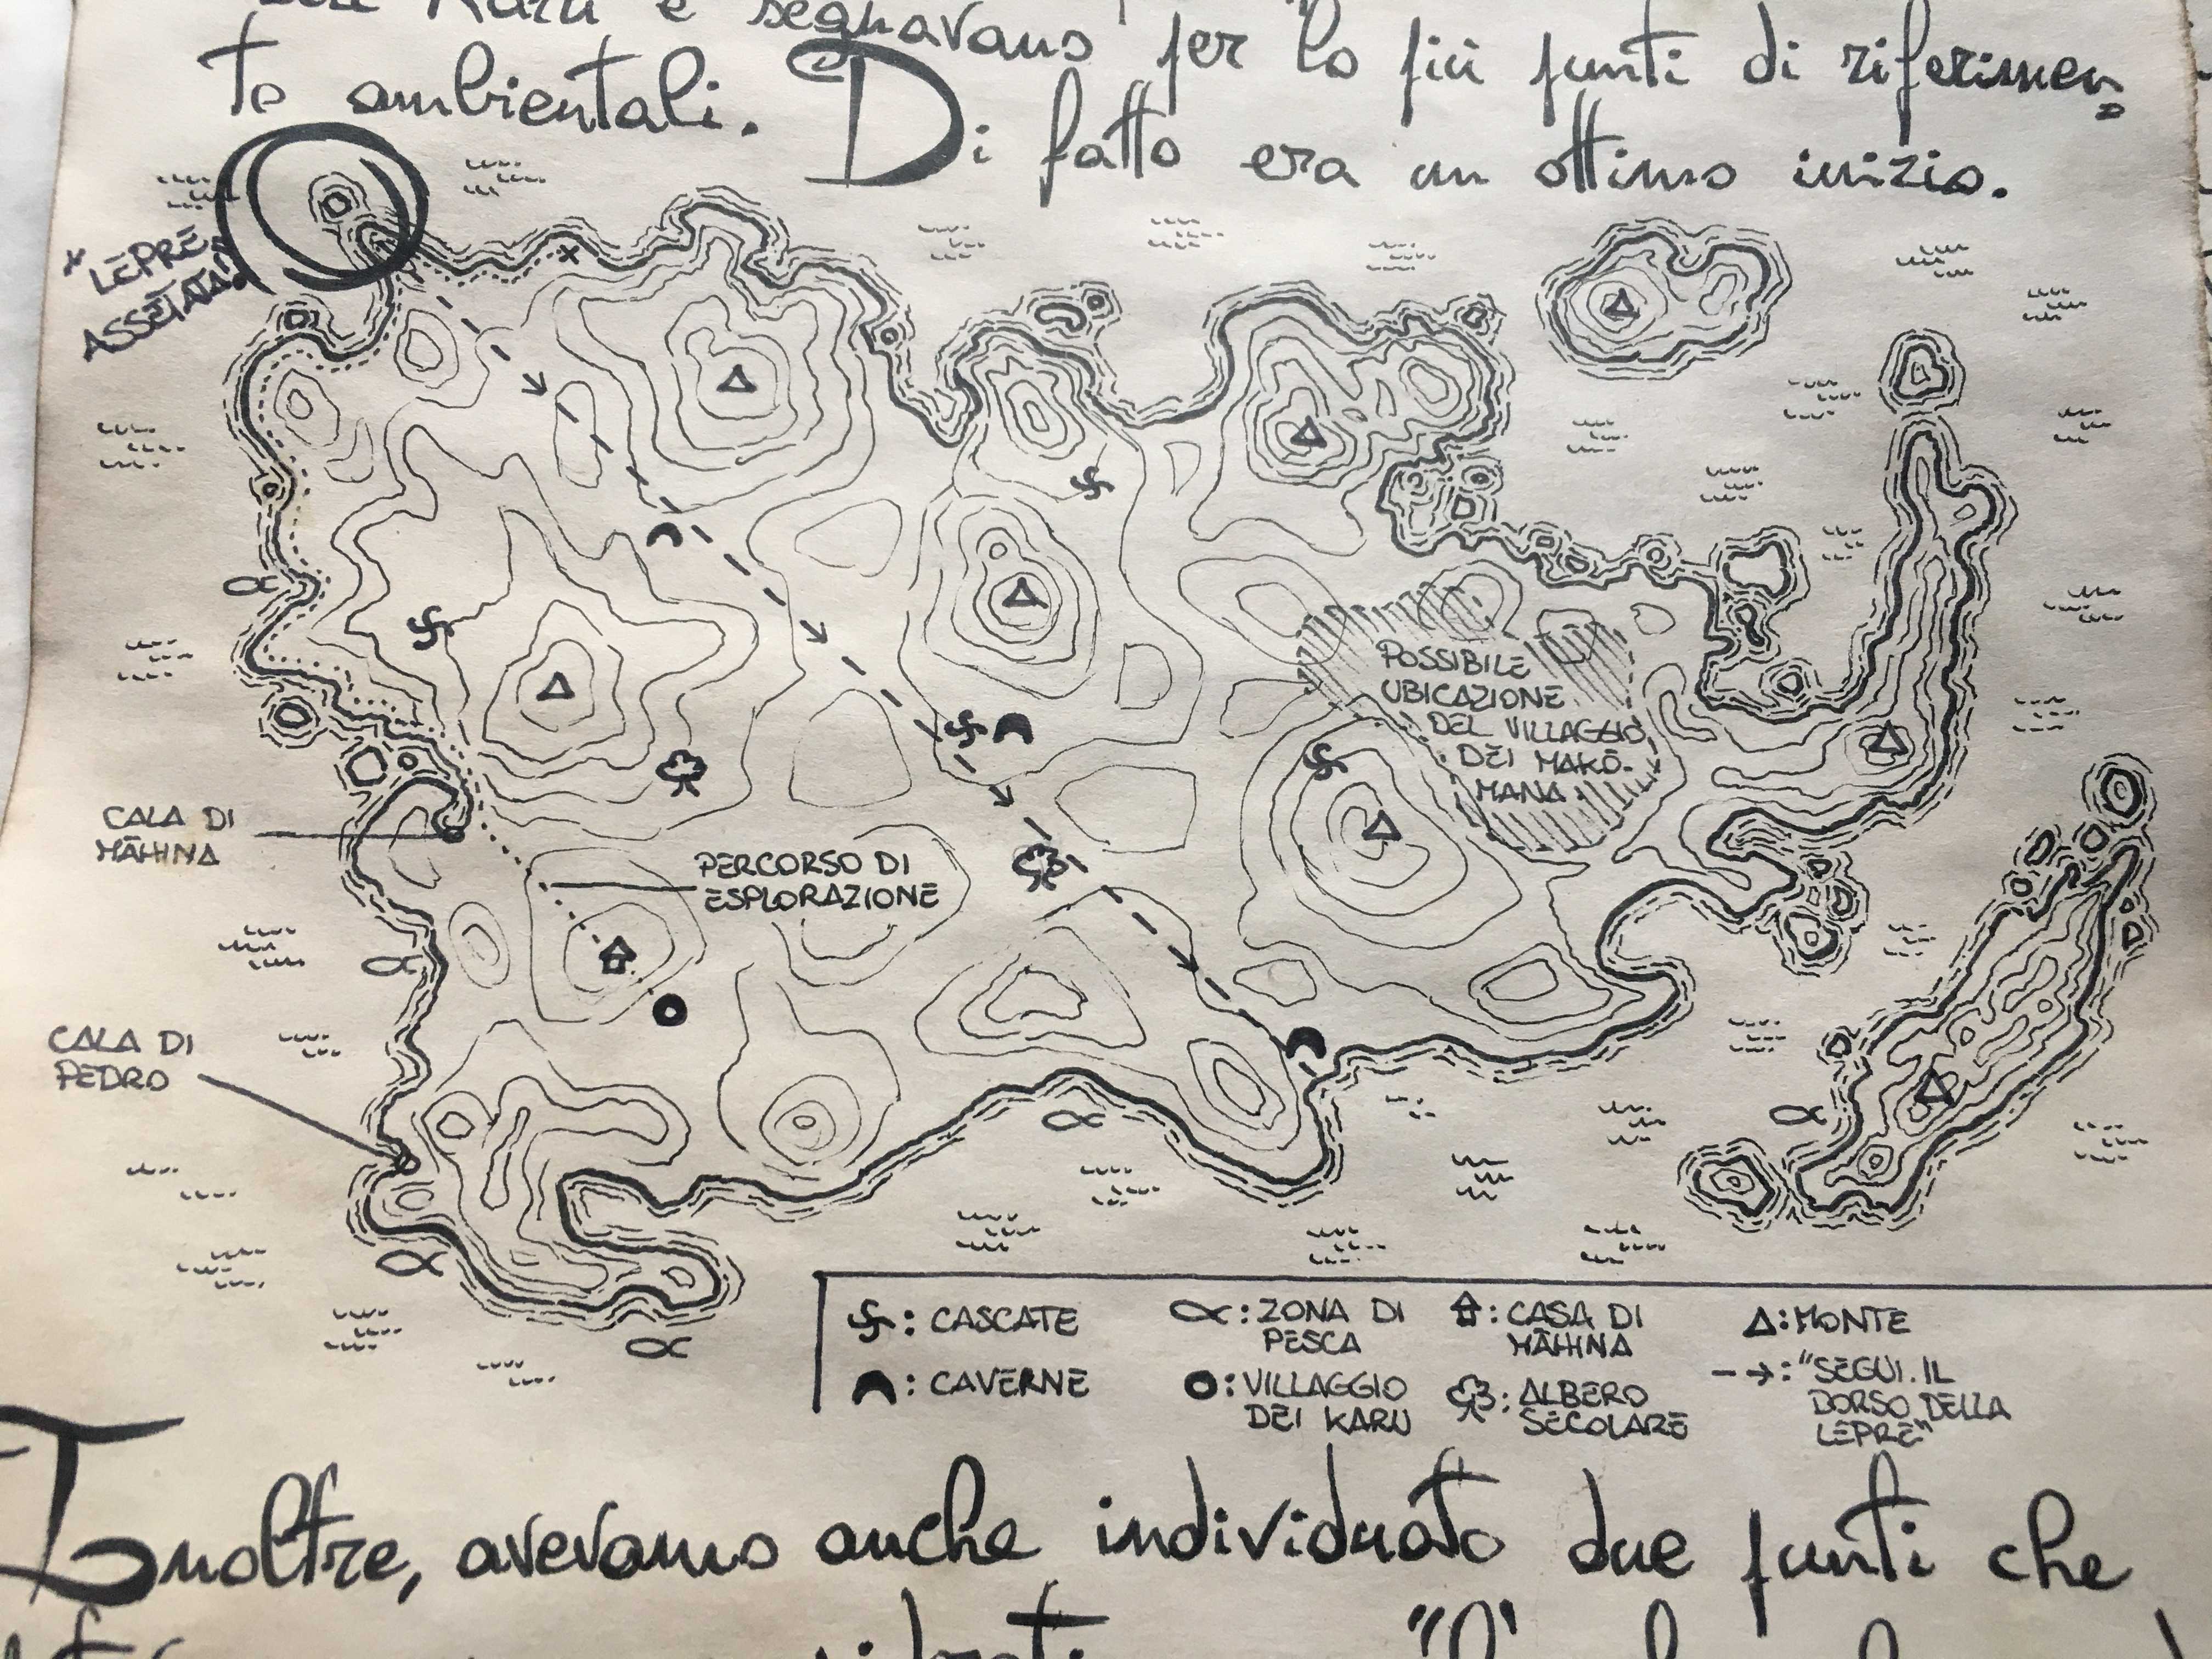 e segnavano per lo più punti di riferimen
to ambientali. Di fatto era un ottimo inizio.
"LEPRE
ASSETATA"
POSSIBILE
UBICAZIONE
DEL VILLAGGIO
DEI MAKŌ-
MANA
CALA DI
MĀHINA
PERCORSO DI
ESPLORAZIONE
CALA DI
PEDRO
: CASCATE
: CAVERNE
: ZONA DI
PESCA
: VILLAGGIO
DEI KARU
: CASA DI
MĀHINA
: ALBERO
SECOLARE
: MONTE
: "SEGUI IL
DORSO DELLA
LEPRE"
Inoltre, avevamo anche individuato due punti che